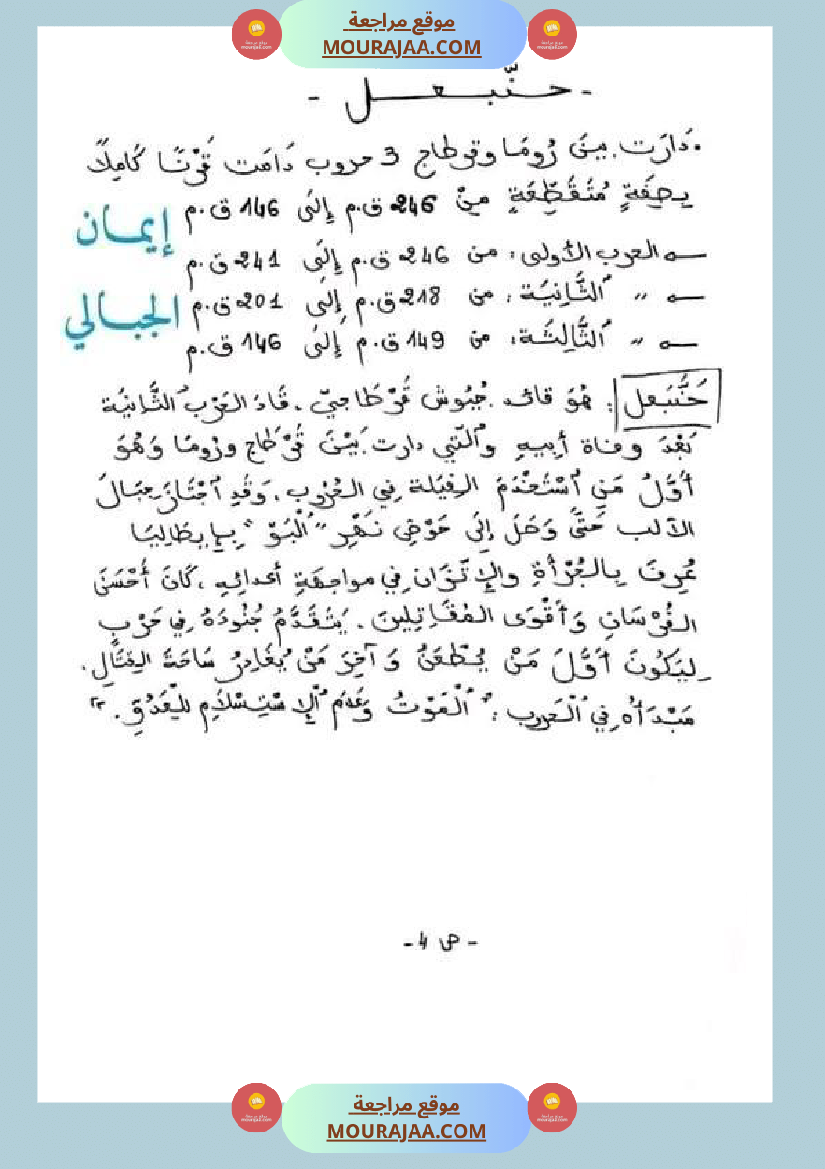 موقع مراجعة
MOURAJAA.COM
- حنّبعل -
. دَارَت بينَ رُومَا وقرطاج 3 حروب دَامَت قَرْنًا كَامِلاً
بِصِفَةٍ مُتَقَطِّعَةٍ مِنْ 246 ق.م إِلَى 146 ق.م
إيمان
الحرب الأولى : من 246 ق.م إِلَى 241 ق.م
" الثَّانِيَة : من 218 ق.م إِلى 201 ق.م
الجبالي
" الثَّالِثَة : من 149 ق.م إِلَى 146 ق.م
حَنَّبَعل : هُوَ قائد جُيُوش قَرْطَاجِيّ . قَادَ الحَرْب الثَّانِيَة
بَعْدَ وفاة أبيهِ والّتي دارت بَيْنَ قَرْطاج ورُومَا وَهُوَ
أوَّلُ مَنِ اسْتَخْدَمَ الفِيَلة فِي الحُرُوب . وَقَدِ اجْتَازَ جِبَالَ
الألب حَتَّى وَصَلَ إِلَى حَوْضِ نَهْرِ " الْبَوْ " بِإيطَالِيَا
عُرِفَ بِالجُرْأَةِ والإتّزَان فِي مواجَهَةِ أعدائِهِ . كَانَ أَحْسَنَ
الفُرْسَانِ وَأَقْوَى المُقَاتِلِينَ . يَتَقَدَّمُ جُنُودَهُ فِي حَرْبٍ
لِيَكُونَ أَوَّلَ مَنْ يُطْعَنُ وَ آخِرَ مَنْ يُغَادِرُ سَاحَةَ القِتَالِ .
مَبْدَأُهُ فِي الْحَرب : " الْمَوْتُ وَعَدَمُ الإِسْتِسْلَامِ لِلْعَدُوِّ . "
- ص 4 -
موقع مراجعة
MOURAJAA.COM